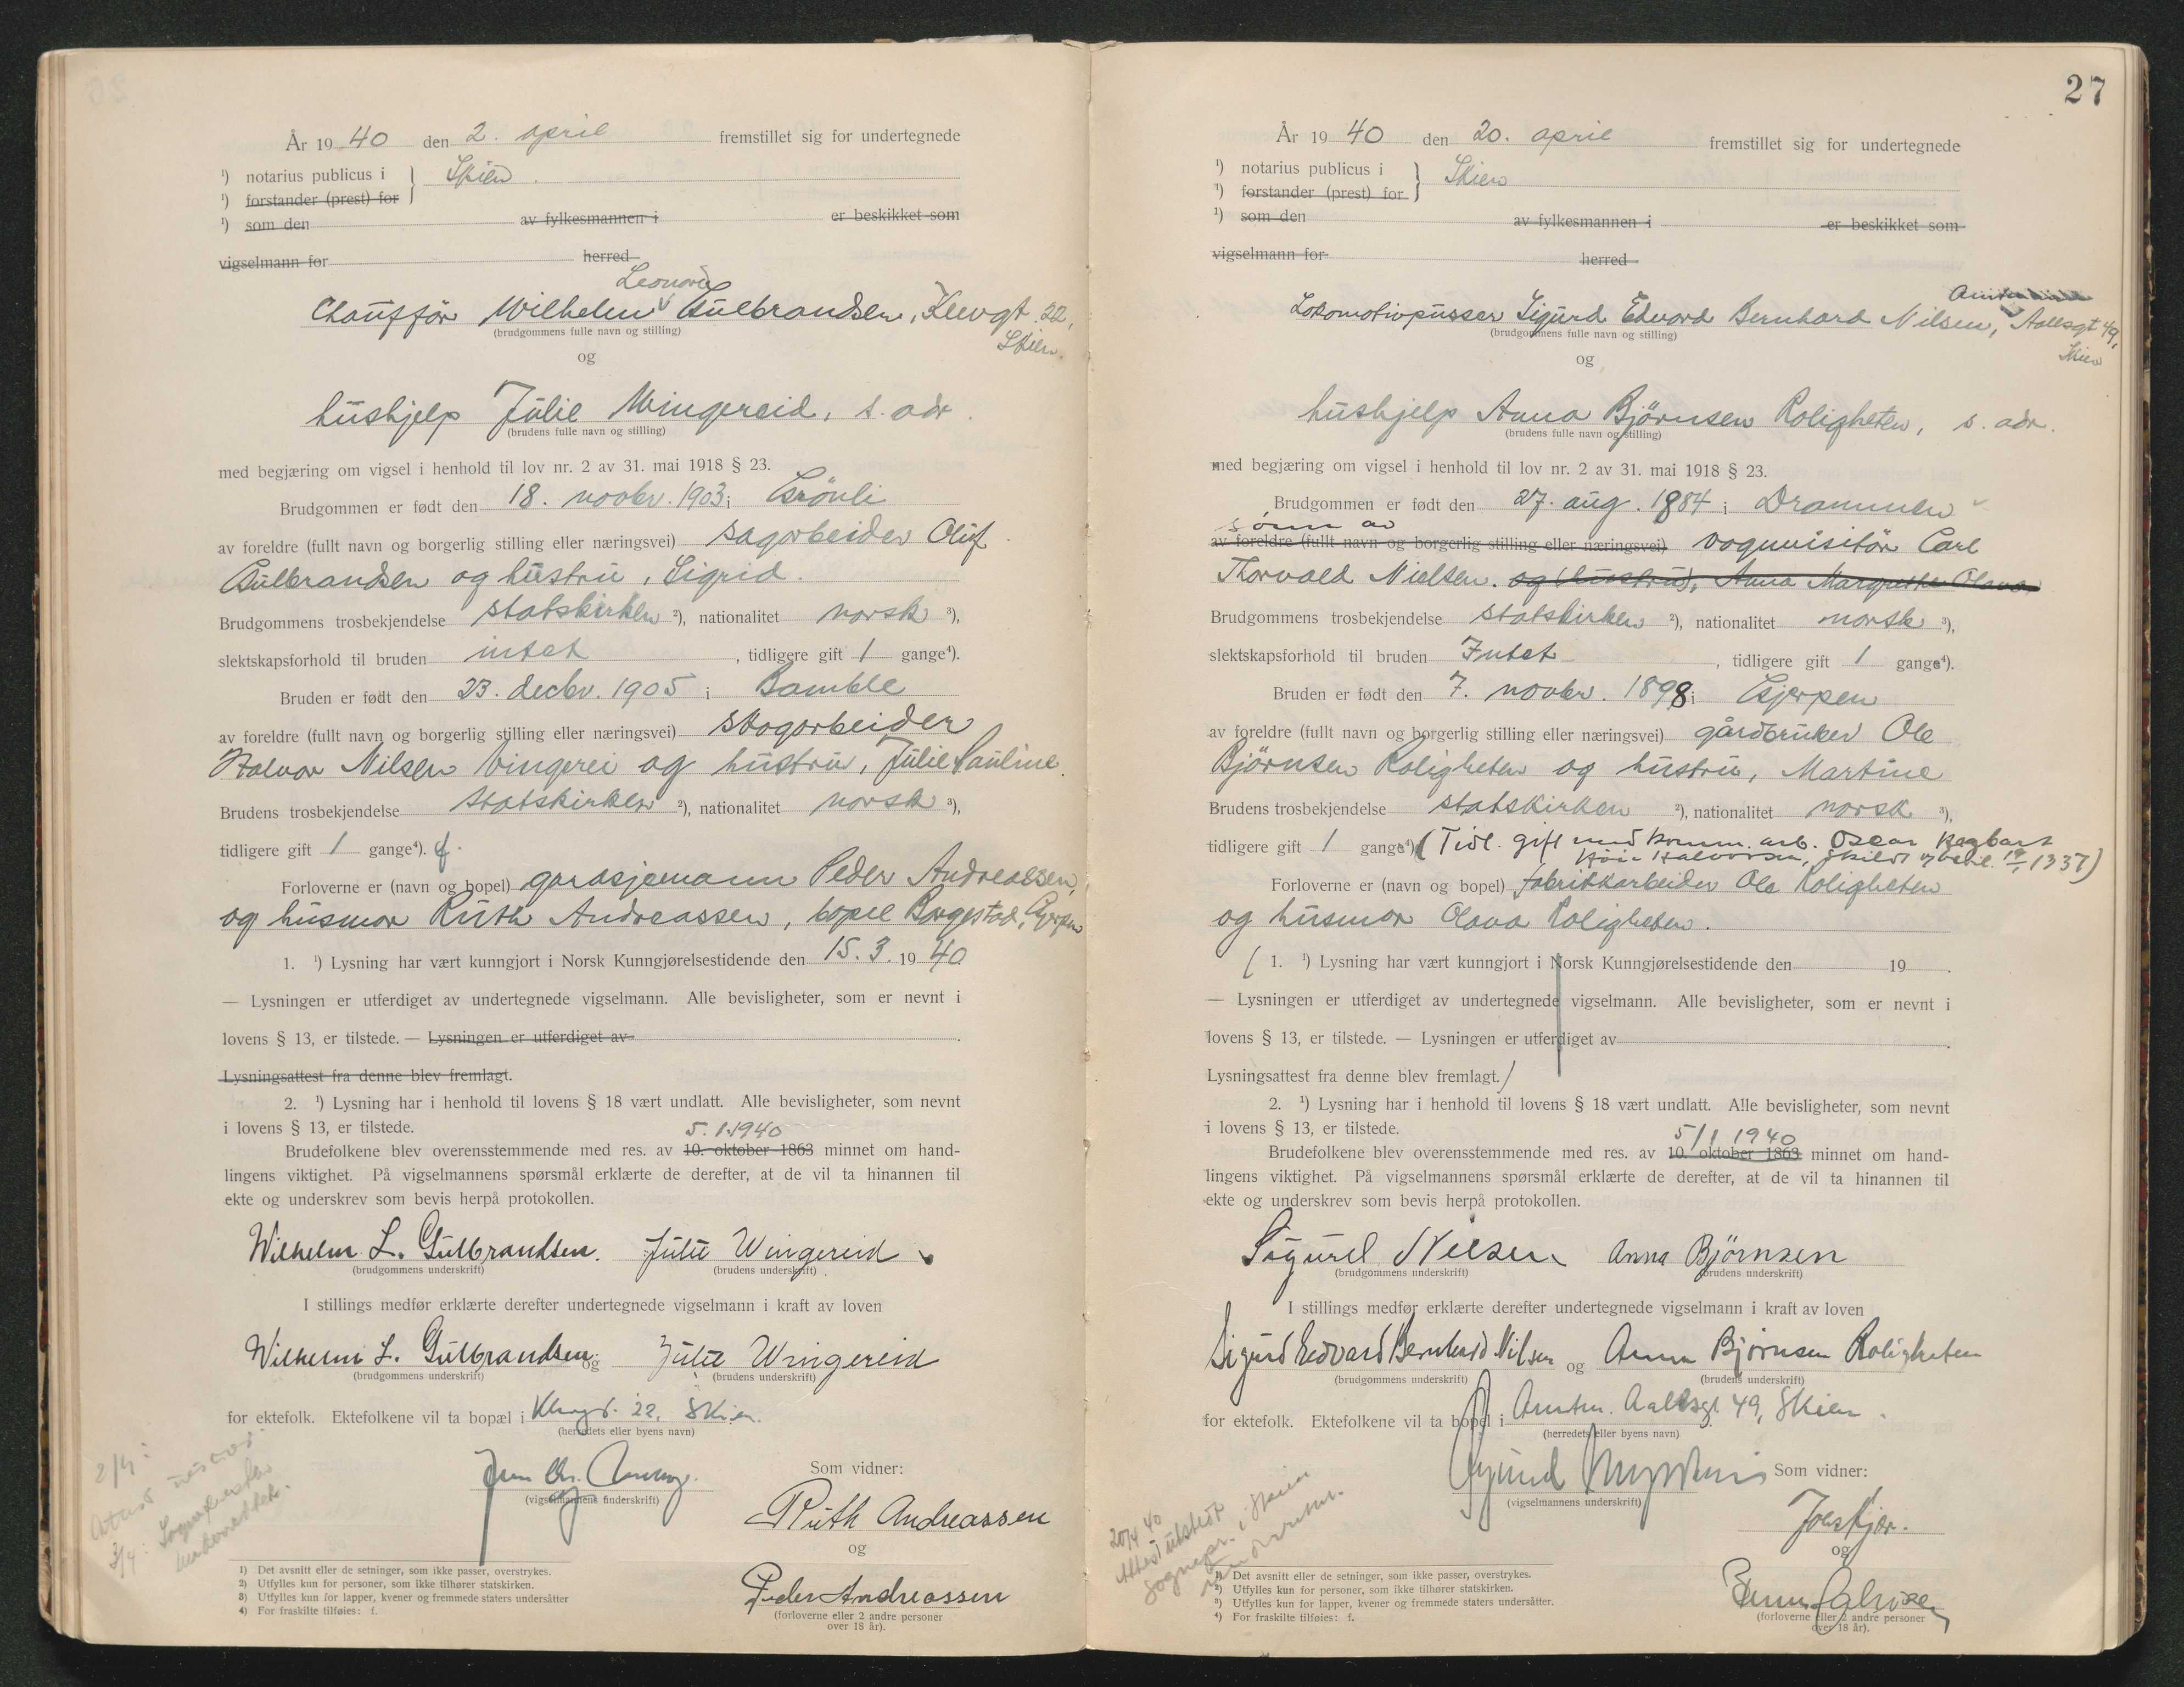 År 19 40 den 2. april fremstillet sig for undertegnede
¹) notarius publicus i } Skien.
¹) forstander (prest) for
¹) som den av fylkesmannen i er beskikket som
vigselmann for herred
Leonord
Chauffør Wilhelm Gulbrandsen, Klevgt. 22,
(brudgommens fulle navn og stilling)
Skien.
og
hushjelp Julie Wingereid, s. adr.
(brudens fulle navn og stilling)
med begjæring om vigsel i henhold til lov nr. 2 av 31. mai 1918 § 23.
Brudgommen er født den 18. novbr. 1903 i Grönli
av foreldre (fullt navn og borgerlig stilling eller næringsvei) sagarbeider Oluf
Gulbrandsen og hustru, Sigrid.
Brudgommens trosbekjendelse statskirken ²), nationalitet norsk ³),
slektskapsforhold til bruden intet, tidligere gift 1 gange⁴).
Bruden er født den 23. decbr. 1905 i Bamble
av foreldre (fullt navn og borgerlig stilling eller næringsvei) skogarbeider
Halvor Nilsen Vingerei og hustru, Julie Pauline.
Brudens trosbekjendelse statskirken ²), nationalitet norsk ³),
tidligere gift 1 gange⁴). f.
Forloverne er (navn og bopel) garasjemann Peder Andreassen,
og husmor Ruth Andreassen, bopel Borgestad, Gjerpen
1. ¹) Lysning har vært kunngjort i Norsk Kunngjørelsestidende den 15. 3. 19 40
— Lysningen er utferdiget av undertegnede vigselmann. Alle bevisligheter, som er nevnt i
lovens § 13, er tilstede. — Lysningen er utferdiget av
Lysningsattest fra denne blev fremlagt.
2. ¹) Lysning har i henhold til lovens § 18 vært undlatt. Alle bevisligheter, som nevnt
i lovens § 13, er tilstede.
5. 1. 1940
Brudefolkene blev overensstemmende med res. av 10. oktober 1863 minnet om hand-
lingens viktighet. På vigselmannens spørsmål erklærte de derefter, at de vil ta hinannen til
ekte og underskrev som bevis herpå protokollen.
Wilhelm L. Gulbrandsen. Julie Wingereid
(brudgommens underskrift) (brudens underskrift)
I stillings medfør erklærte derefter undertegnede vigselmann i kraft av loven
Wilhelm L. Gulbrandsen og Julie Wingereid
(brudgommens underskrift) (brudens underskrift)
for ektefolk. Ektefolkene vil ta bopæl i Klevgt. 22, Skien.
(herredets eller byens navn)
2/4:
Attest
3/4: Sognepresten
underrettet.
Som vidner:
(vigselmannens underskrift)
Ruth Andreassen
og
Peder Andreassen
(forloverne eller 2 andre personer
over 18 år).
1) Det avsnitt eller de setninger, som ikke passer, overstrykes.
2) Utfylles kun for personer, som ikke tilhører statskirken.
3) Utfylles kun for lapper, kvener og fremmede staters undersåtter
4) For fraskilte tilføies: f.
27
År 19 40 den 20. april fremstillet sig for undertegnede
¹) notarius publicus i } Skien
¹) forstander (prest) for
¹) som den av fylkesmannen i er beskikket som
vigselmann for herred
Lokomotivpusser Sigurd Edvard Bernhard Nilsen, Aallsgt 49,
(brudgommens fulle navn og stilling)
Skien
og
hushjelp Anna Björnsen Roligheten, s. adr.
(brudens fulle navn og stilling)
med begjæring om vigsel i henhold til lov nr. 2 av 31. mai 1918 § 23.
Brudgommen er født den 27. aug. 1884 i Drammen
sønn av
av foreldre (fullt navn og borgerlig stilling eller næringsvei) vognvisitör Carl
Thorvald Nielsen. og (hustru), Anna Margrethe Olava
Brudgommens trosbekjendelse statskirken ²), nationalitet norsk ³),
slektskapsforhold til bruden Intet, tidligere gift 1 gange⁴).
Bruden er født den 7. novbr. 1898 i Gjerpen
av foreldre (fullt navn og borgerlig stilling eller næringsvei) gårdbruker Ole
Björnsen Roligheten og hustru, Martine
Brudens trosbekjendelse statskirken ²), nationalitet norsk ³),
tidligere gift 1 gange⁴). (Tidl. gift med komm. arb. Oscar Ragbart
Halvorsen, skilt 1937)
Forloverne er (navn og bopel) fabrikkarbeider Ole Roligheten
og husmor Olava Roligheten.
( 1. ¹) Lysning har vært kunngjort i Norsk Kunngjørelsestidende den 19 .
— Lysningen er utferdiget av undertegnede vigselmann. Alle bevisligheter, som er nevnt i
lovens § 13, er tilstede. — Lysningen er utferdiget av
Lysningsattest fra denne blev fremlagt. )
2. ¹) Lysning har i henhold til lovens § 18 vært undlatt. Alle bevisligheter, som nevnt
i lovens § 13, er tilstede.
5/1 1940
Brudefolkene blev overensstemmende med res. av 10. oktober 1863 minnet om hand-
lingens viktighet. På vigselmannens spørsmål erklærte de derefter, at de vil ta hinannen til
ekte og underskrev som bevis herpå protokollen.
Sigurd Nilsen Anna Björnsen
(brudgommens underskrift) (brudens underskrift)
I stillings medfør erklærte derefter undertegnede vigselmann i kraft av loven
Sigurd Edvard Bernhard Nilsen og Anna Bjørnsen Roligheten
(brudgommens underskrift) (brudens underskrift)
for ektefolk. Ektefolkene vil ta bopel i Amtm. Aallsgt. 49, Skien.
(herredets eller byens navn)
20/4 40
Attest utstedt
Sognepr. i Skien
underrettet.
Som vidner:
(vigselmannens underskrift)
og
(forloverne eller 2 andre personer
over 18 år).
¹) Det avsnitt eller de setninger, som ikke passer, overstrykes.
²) Utfylles kun for personer, som ikke tilhører statskirken.
³) Utfylles kun for lapper, kvener og fremmede staters undersåtter.
⁴) For fraskilte tilføies: f.